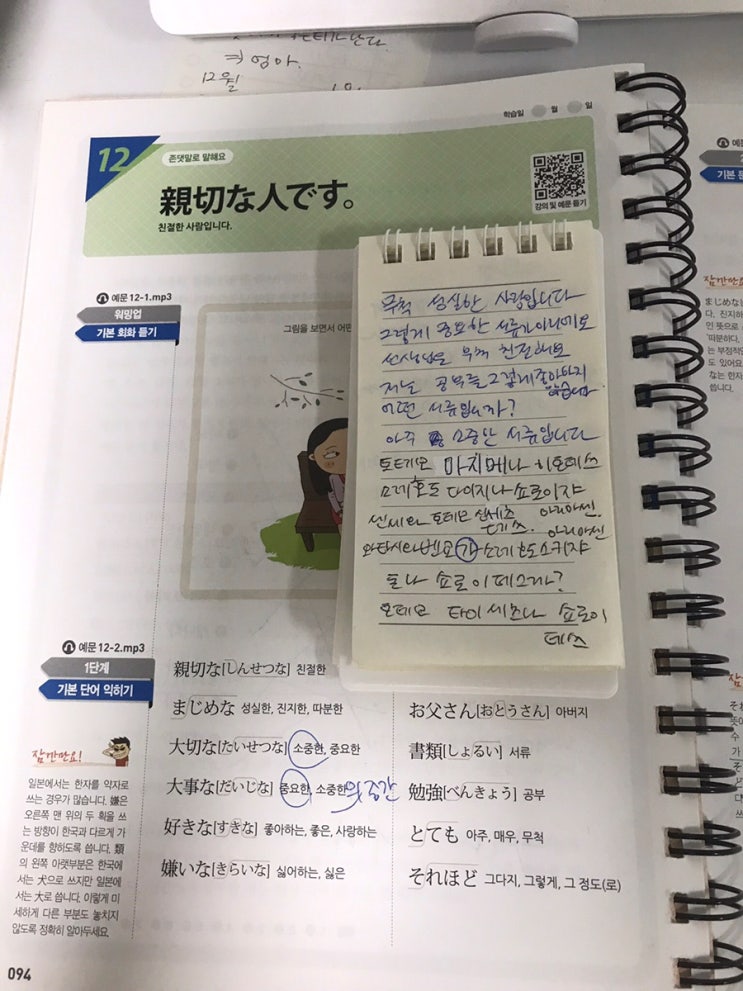 키 엄아.
12월
학습일 월 일
12
존댓말로 말해요
親切な人です。
친절한 사람입니다.
강의 및 예문 듣기
예문 12-1.mp3
워밍업
기본 회화 듣기
그림을 보면서 어떤
무척 성실한 사람입니다
그렇게 중요한 서류가아니에요
선생님은 무척 친절해요
저는 공부를 그렇게좋아하지
않습니다
어떤 서류입니까?
아주 소중한 서류입니다
토테모 마지메나 히토데스
소레호도 다이지나 쇼루이쟈
아리마센
센세와 토테모 신세츠
데스.
아리마센
와타시와벤쿄가소레호도스키쟈
돈나 쇼루이데스까?
토테모 타이세츠나 쇼루이
데스
예문 12-2.mp3
1단계
기본 단어 익히기
親切な[しんせつな] 친절한
まじめな 성실한, 진지한, 따분한
大切な[たいせつな] 소중한, 중요한
大事な[だいじな] 중요한, 소중한
好きな[すきな] 좋아하는, 좋은, 사랑하는
嫌いな[きらいな] 싫어하는, 싫은
お父さん[おとうさん] 아버지
書類[しょるい] 서류
勉強[べんきょう] 공부
とても 아주, 매우, 무척
それほど 그다지, 그렇게, 그 정도(로)
잠깐만요!
일본에서는 한자를 약자로
쓰는 경우가 많습니다. 嫌은
오른쪽 맨 위의 두 획을 쓰
는 방향이 한국과 다르게 가
운데를 향하도록 씁니다. 類
의 왼쪽 아랫부분은 한국에
서는 犬으로 쓰지만 일본에
서는 大로 씁니다. 이렇게 미
세하게 다른 부분도 놓치지
않도록 정확히 알아두세요.
094
잠깐만요
まじめな
다. 진지하
인 뜻으로
'따분하다.
는 부정적
도 있어요
な는 한자
씁니다.